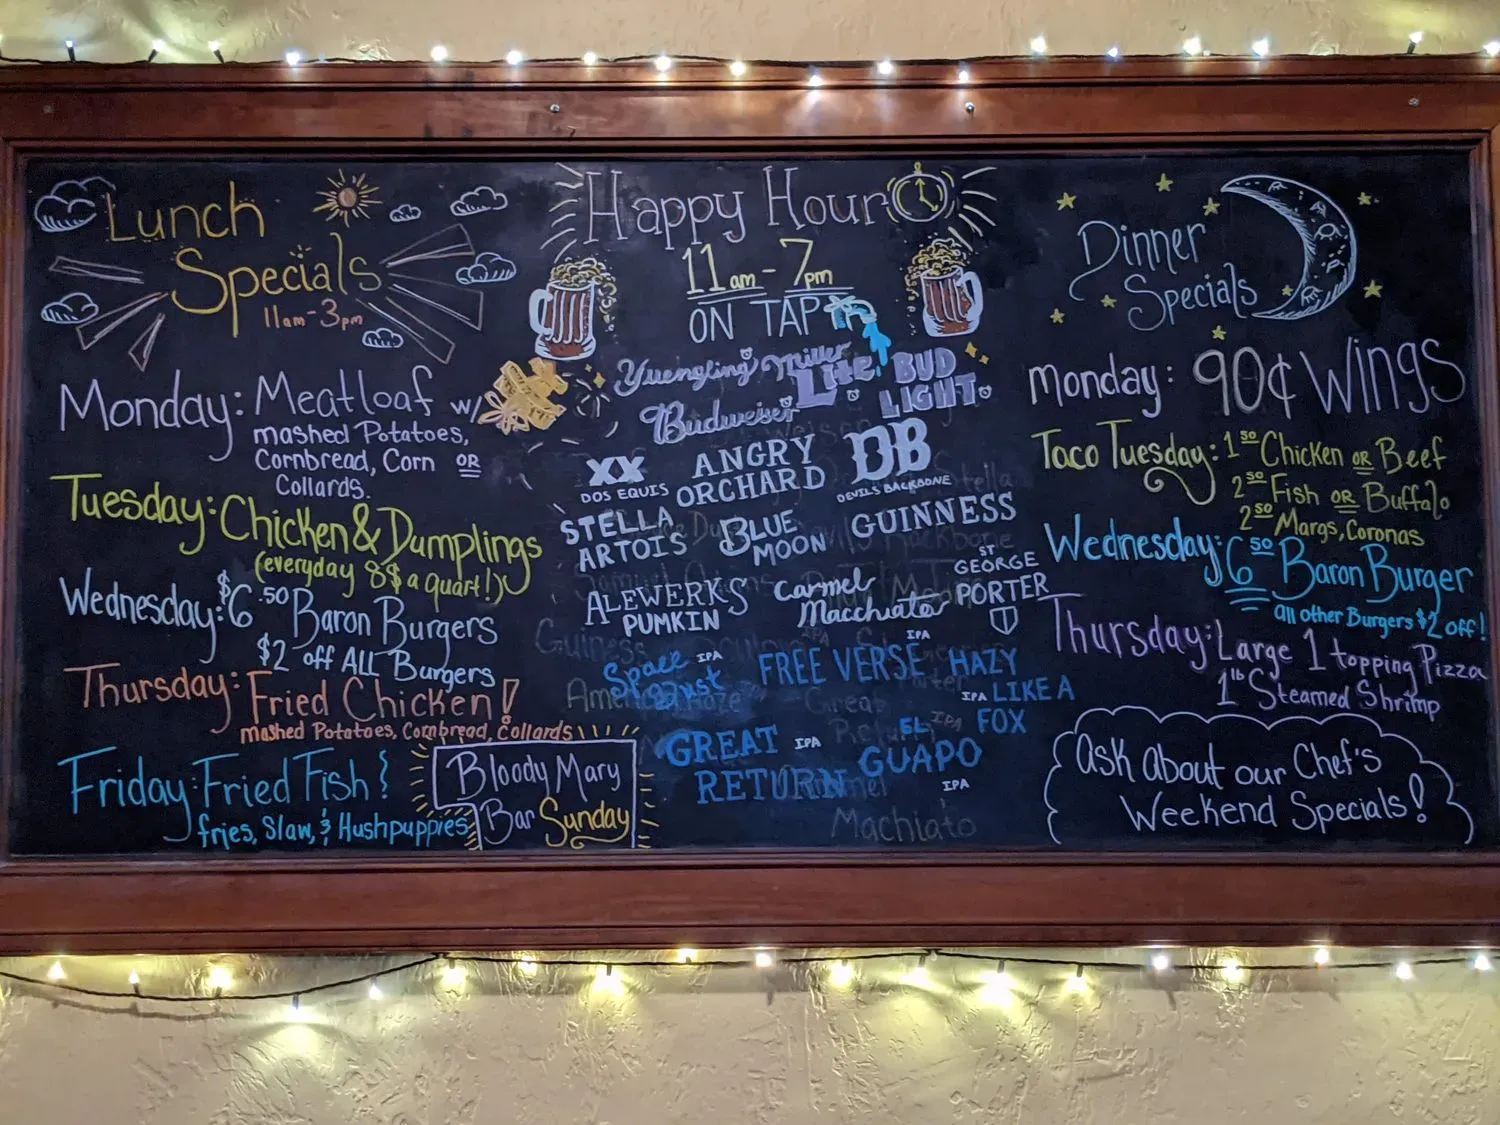 Lunch
Specials
11am-3pm
Monday: Meatloaf w/
mashed Potatoes,
Cornbread, Corn OR
Collards.
Tuesday: Chicken & Dumplings
(everyday 8$ a quart!)
Wednesday: $6.50 Baron Burgers
$2 off ALL Burgers
Thursday: Fried Chicken!
mashed Potatoes, Cornbread, Collards
Friday: Fried Fish!
fries, Slaw, & Hushpuppies
Bloody Mary
Bar Sunday
Happy Hour
11am-7pm
ON TAP
Yuengling Miller Lite BUD LIGHT
Budweiser
XX DOS EQUIS
ANGRY ORCHARD
DB DEVILS BACKBONE
STELLA ARTOIS
BLUE MOON
GUINNESS
ALEWERKS PUMKIN
Carmel Macchiato
ST GEORGE PORTER
Space Dust IPA
FREE VERSE IPA
HAZY LIKE A FOX IPA
GREAT RETURN IPA
EL GUAPO IPA
Machiato
Dinner
Specials
Monday: 90¢ Wings
Taco Tuesday: 1.50 Chicken OR Beef
2.50 Fish OR Buffalo
2.50 Margs, Coronas
Wednesday: 6.50 Baron Burger
all other Burgers $2 off!
Thursday: Large 1 topping Pizza
1lb Steamed Shrimp
Ask About our Chef's
Weekend Specials!